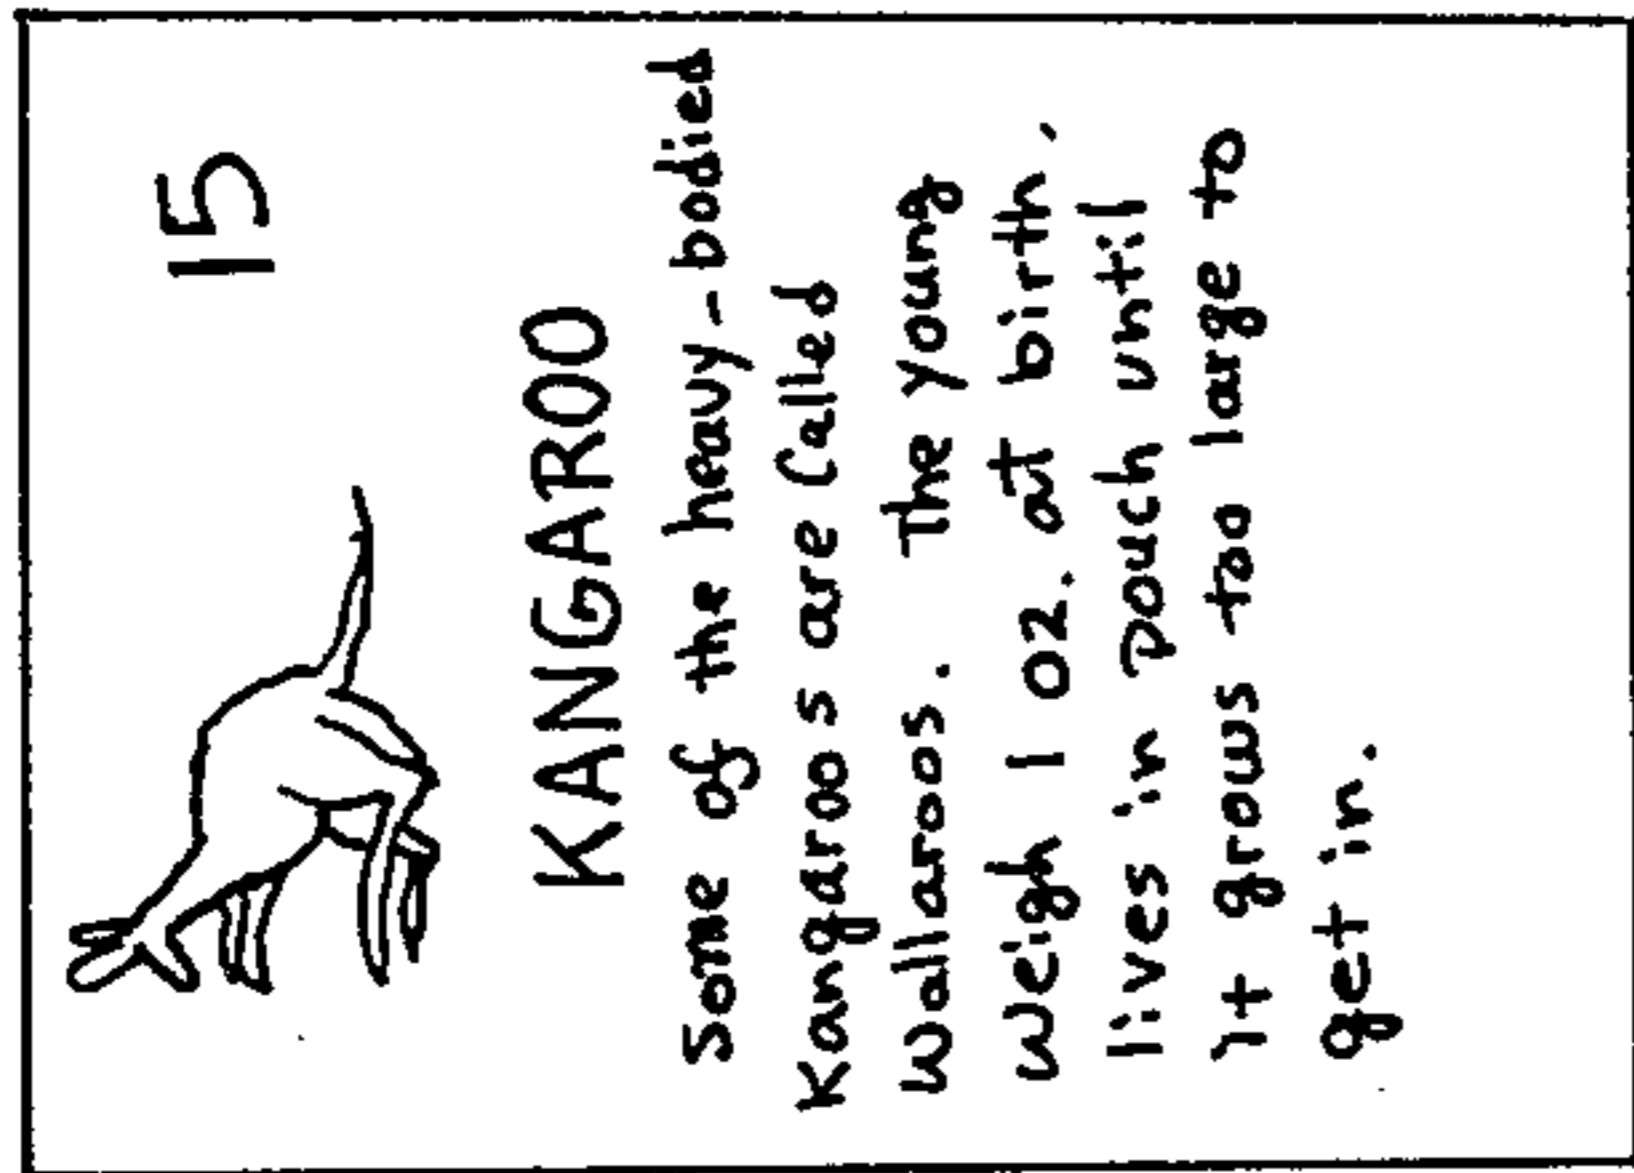 15
KANGAROO
Some of the heavy-bodied
Kangaroos are Called
Wallaroos. The young
weigh 1 oz. at birth,
lives in pouch until
it grows too large to
get in.